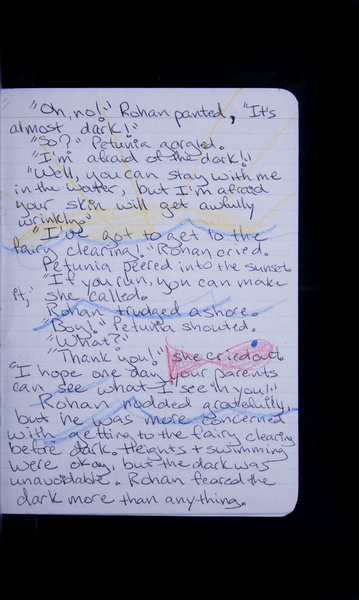 "Oh, no!" Rohan panted, "It's
almost dark!"
"So?" Petunia gargled.
"I'm afraid of the dark!"
"Well, you can stay with me
in the water, but I'm afraid
your skin will get awfully
wrinkly."
"I've got to get to the
fairy clearing!" Rohan cried.
Petunia peered into the sunset.
"If you run, you can make
it," she called.
Rohan trudged ashore.
"Boy!" Petunia shouted.
"What?"
"Thank you!" she cried out.
"I hope one day your parents
can see what I see in you!"
Rohan nodded gratefully,
but he was more concerned
with getting to the fairy clearing
before dark. Heights + swimming
were okay, but the dark was
unavoidable. Rohan feared the
dark more than anything.